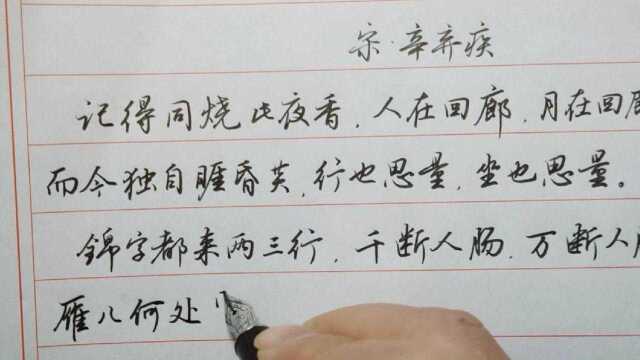 宋·辛弃疾
记得同烧此夜香，人在回廊，月在回
而今独自睚昏黄，行也思量，坐也思量。
錦字都来两三行，千断人肠，万断人
雁儿何处